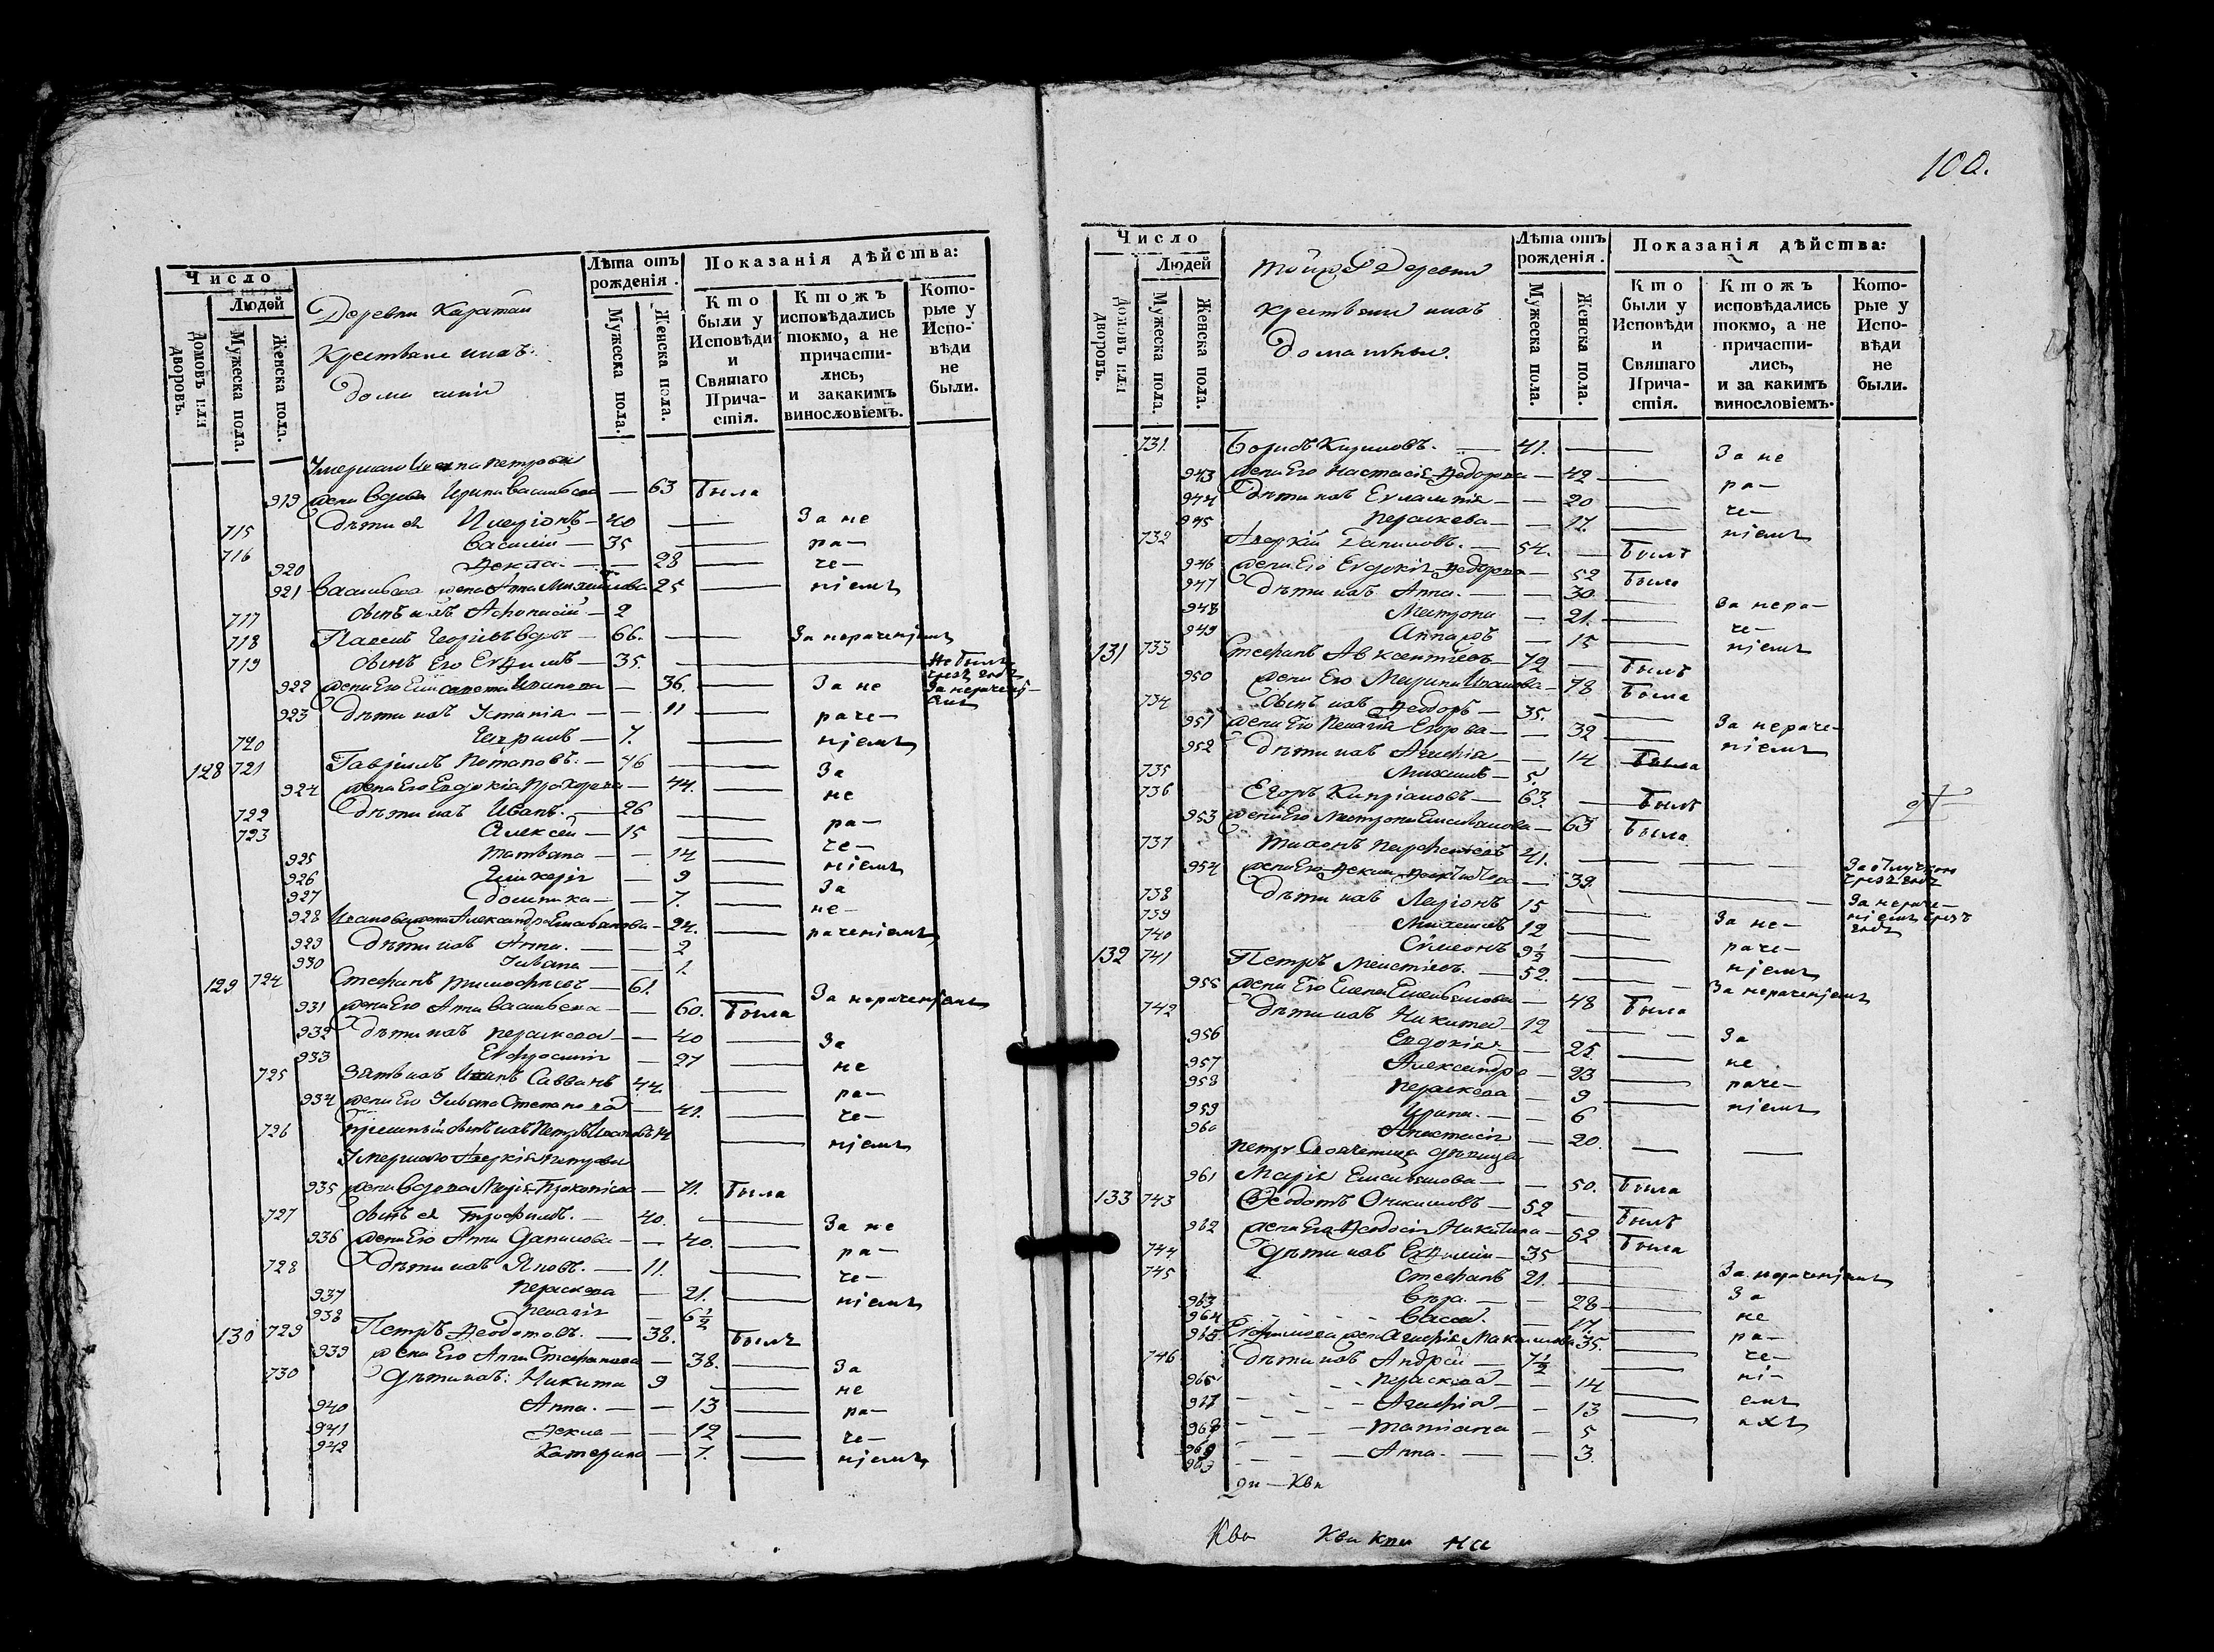 100.
Число
Людей
Домовъ или дворовъ.
Мужеска пола.
Женска пола.
Деревни Каратаи
Крестьяне ихъ
домашніи
Лѣта отъ рожденія.
Мужеска пола.
Женска пола.
Показанія дѣйства:
Кто были у Исповѣди и Святаго Причастія.
Ктожъ исповѣдались токмо, а не причастились, и закакимъ винословіемъ.
Которые у Исповѣди не были.
Умершаго Ивана Петрова
919 жена вдова Ирина Васильева — 63 Была
715 Дѣти ея Иларіонъ — 40 — За не
716 Василій — 35 — ра—
920 Ѳекла — 28 — че—
921 Васильева жена Анна Михайлова 25 — ніемъ
717 Сынъ ихъ Афонасій — 2
718 Павелъ Георгіевъ вдовъ — 66. — За нераченіемъ
719 Сынъ Его Евѳимъ — 35. — Не былъ
чрезъ годъ
922 жена Его Елисавета Иванова — 36. — За не За нерачені—
емъ
923 Дѣти ихъ Устинія — 11 — раче—
720 — 7. — ніемъ
128 721 Гавріилъ Потаповъ. — 46 — За
924 жена Его Евдокіа Прохорова — 44. — не
722 Дѣти ихъ Иванъ. — 26 — ра—
723 Алексѣй — 15 — че—
925 Татьяна — 14 — ніемъ
926 Гликерія — 9 — За
927 Домника — 7. — не—
928 Иванова жена Александра Емельянова — 24. — раченіемъ
929 Дѣти ихъ Анна. — 2
930 Уліана — 1.
129 724 Стефанъ Тимофѣевъ — 61. — За нераченіемъ
931 жена Его Анна Васильева — 60. Была
932 Дѣти ихъ Параскева — 40 — За
933 Евфросинія — 27 — не
725 Зять ихъ Иванъ Саввинъ 44. — ра—
934 жена Его Уліана Степанова — 41. — че—
726 Пріемный сынъ ихъ Петръ Ивановъ 14 — ніемъ
Умершаго Аверкія Петрова
935 жена вдова Марія Прокопіева — 71. Была
727 Сынъ ея Трофимъ. — 40. — За не
936 жена Его Анна Данилова — 40. — ра—
728 Дѣти ихъ Яковъ. — 11. — че—
937 Параскева — 21. — ніемъ
938 Пелагія — 6½
130 729 Петръ Ѳеодотовъ. — 38. Былъ
939 жена Его Анна Стефанова — 38. — За
730 Дѣти ихъ: Никита 9 — не
940 Анна. — 13 — ра—
941 Ѳекла — 12 — че—
942 Катерина — 7. — ніемъ
Число
Людей
Домовъ или дворовъ.
Мужеска пола.
Женска пола.
Тойже деревни
крестьяне ихъ
домашніи.
Лѣта отъ рожденія.
Мужеска пола.
Женска пола.
Показанія дѣйства:
Кто были у Исповѣди и Святаго Причастія.
Ктожъ исповѣдались токмо, а не причастились, и за какимъ винословіемъ.
Которые у Исповѣди не были.
731. Борисъ Кириловъ. — 41. — За не
943 жена Его Настасія Ѳедорова — 42 — ра—
944 Дѣти ихъ Евлампія — 20 — че—
945 Параскева — 17. — ніемъ
732 Аверкій Даниловъ. — 54. — Былъ
946 жена Его Евдокія Ѳедорова — 52 Была
947 Дѣти ихъ Анна. — 30 — За нера—
948 Матрона — 21. — че—
949 — 15 — ніемъ
131 733 Стефанъ Авксентіевъ — 79 — Былъ
950 жена Его Марина Иванова — 78 Была
734 Сынъ ихъ Ѳеодоръ — 35. —
951 жена Его Пелагія Егорова — 32 — За нераче—
952 Дѣти ихъ Агафія — 14 Была ніемъ
735 Михаилъ — 5.
736 Егоръ Кипріановъ — 63. — Былъ
953 жена Его Матрона Емельянова — 63 Была
737 Тихонъ Парфеніевъ 41. — За отлучкою
чрезъ годъ
954 жена Его Ѳекла — 39. — За нераче—
ніемъ чрезъ
годъ
738 Дѣти ихъ Ларіонъ 15 —
739 Михаилъ 12 — За не—
740 Сѵмеонъ 9½ — раче—
132 741 Петръ — 52. — ніемъ
955 жена Его Елена Емельянова — 48 Была За нераченіемъ
742 Дѣти ихъ Никита — 12
956 Евдокія — 25. — За
957 Александра — 23 — не
958 Параскева — 9 — раче—
959 Ирина. — 6 — ніемъ
960 Анастасія — 20.
Петру Своячетица дѣвица
961 Марія Емельянова — 50. Была
133 743 Ѳеодотъ Оникимовъ — 52 — Былъ
962 жена Его Ѳеодосія Никитина — 52. Была
744 Дѣти ихъ Евѳимій — 35
745 Стефанъ 21. — За нераченіемъ
963 Вѣра. — 28 — За
964 Васса. — 17. — не
965 Евѳимова жена Агафія Максимова 35. — ра—
746 Дѣти ихъ Андрей — 7½ — че—
Параскева — 14 — ні—
967 Агафія — 13 — емъ
968 Татіана — 5
969 Анна. — 3.
Кви